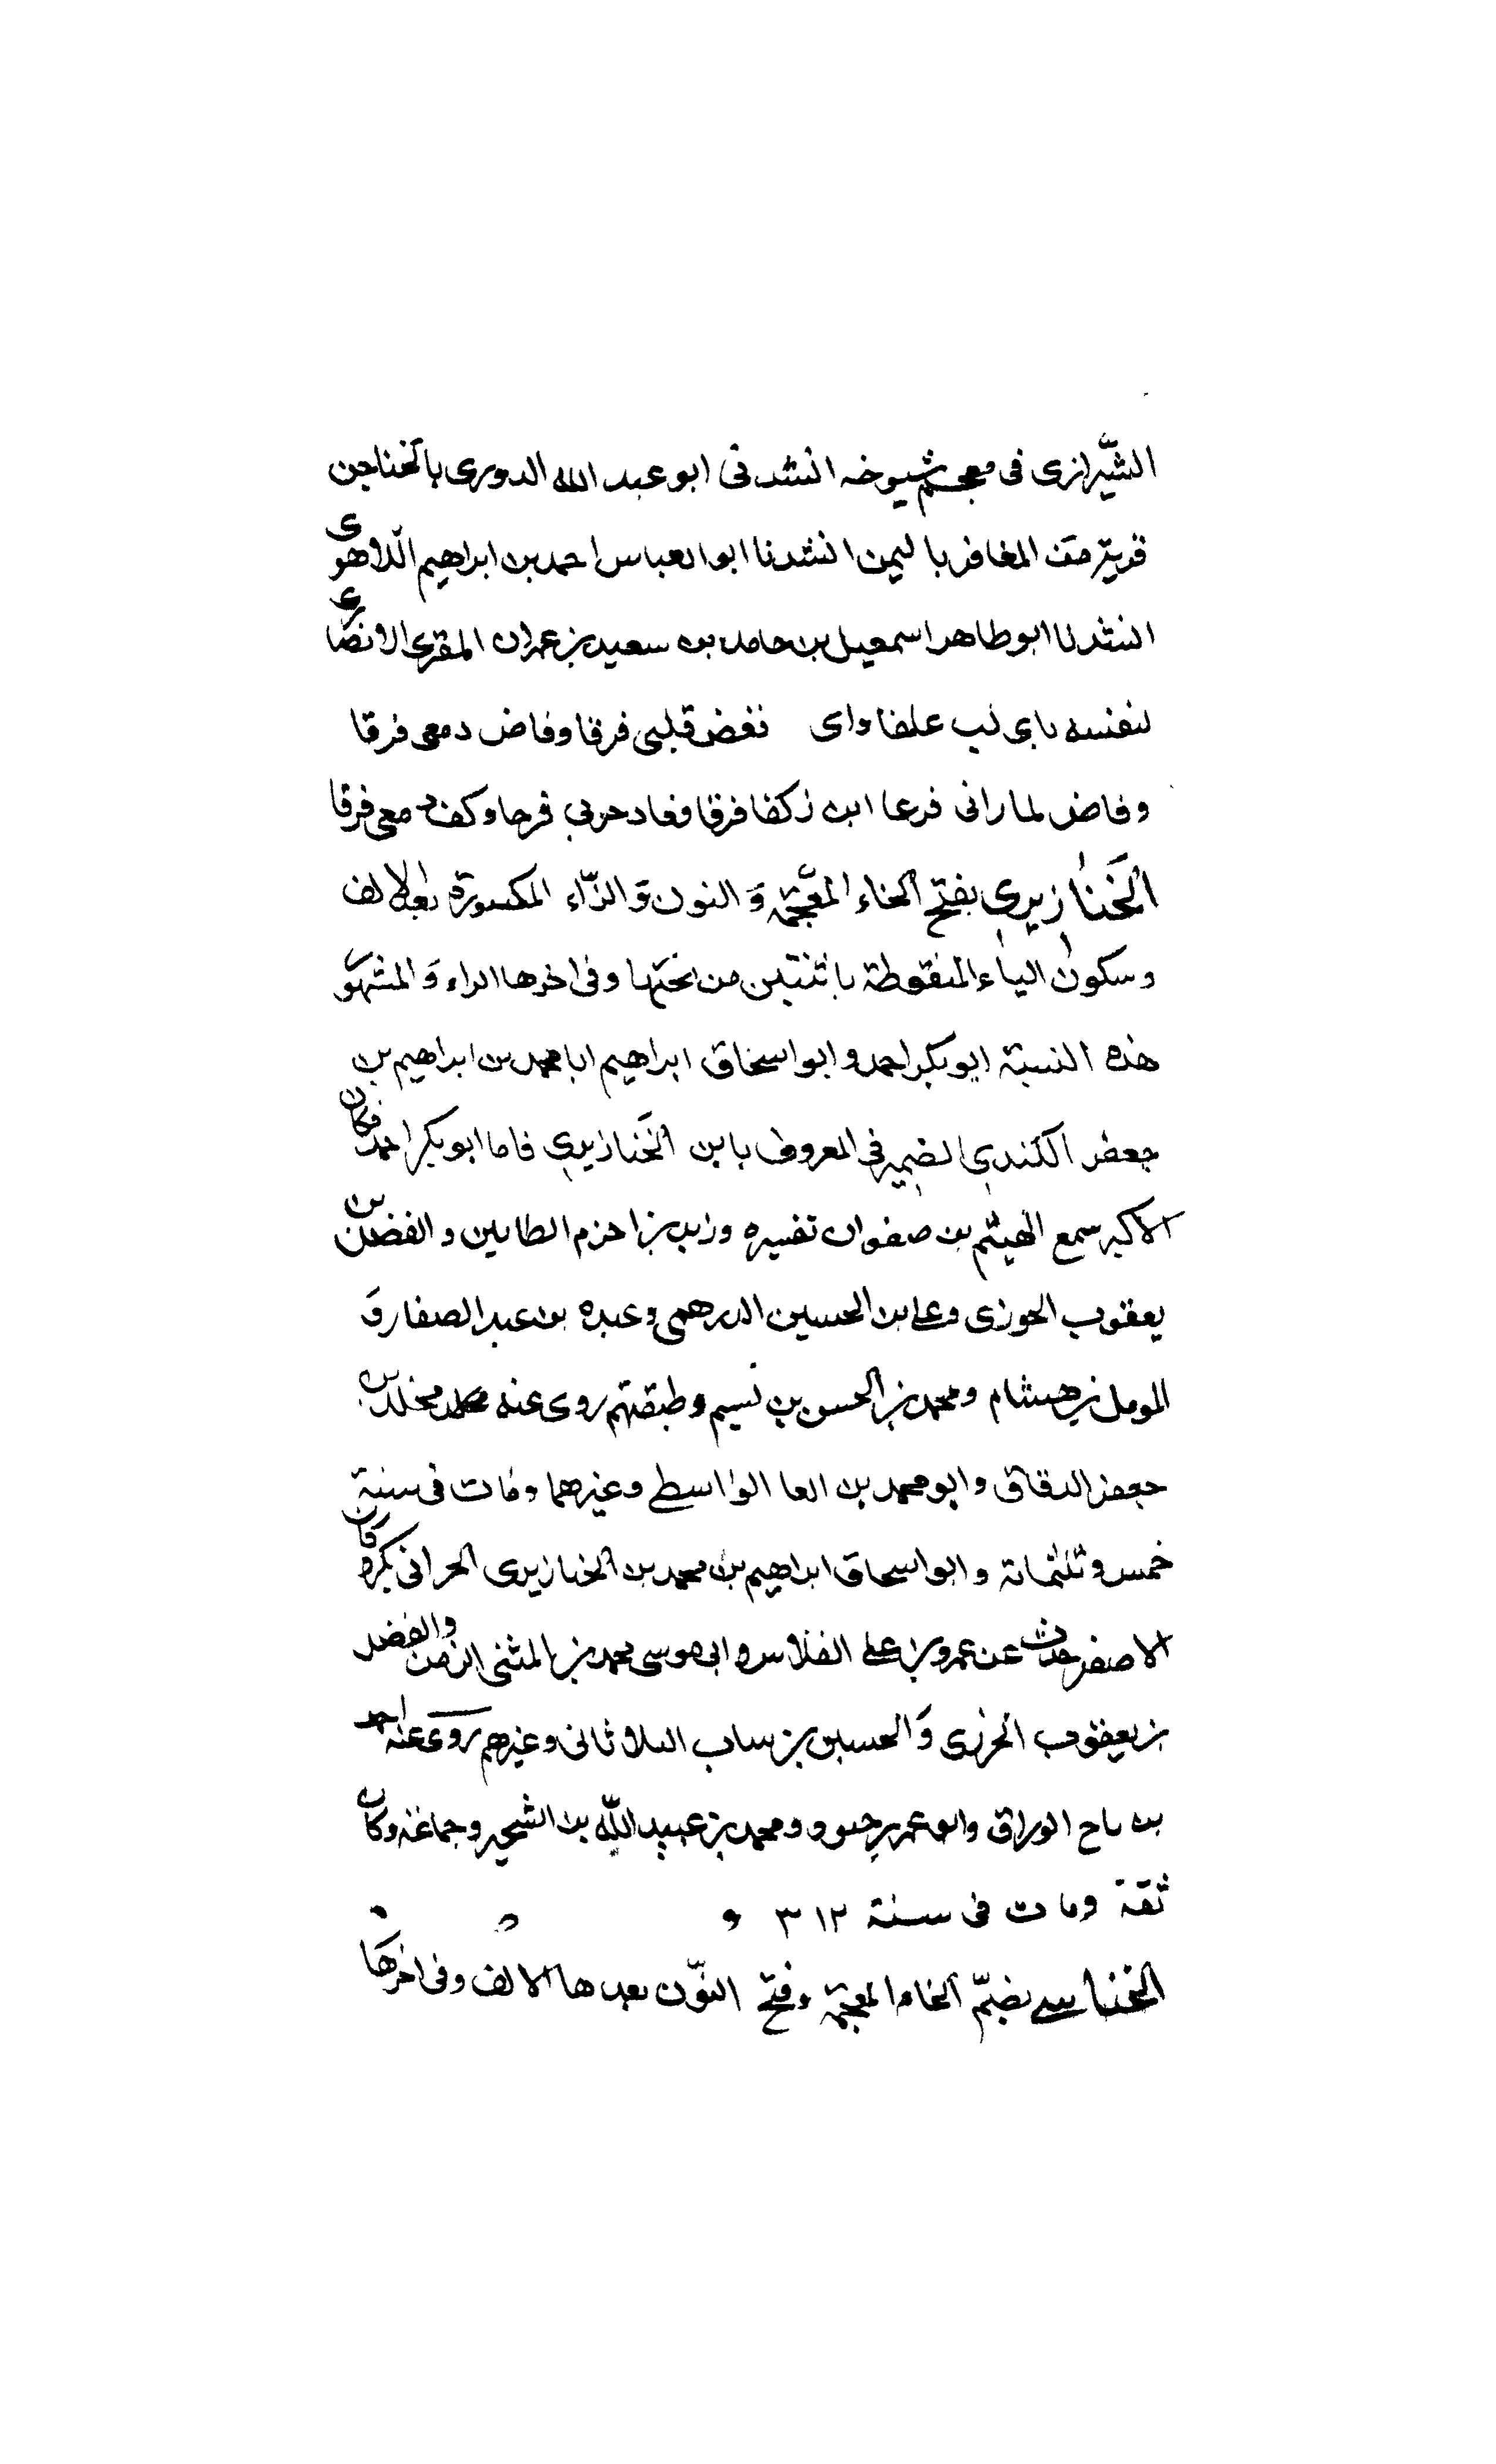 الشّيرازى فى معجم شيوخه انشدنى ابو عبد الله الدورى بالخناجن
قرية من المعافر باليمن انشدنا ابو العباس احمد بن ابراهيم اللاهوى
انشدنا ابو طاهر اسمعيل بن حامد بن سعيد بن عمران المقرى الانصارى
لنفسه فرقا وفاض دمعى فرقا
وفاض لما رانى فرقا فعاد فرحا وكف دمعى فرقا
الخَنازيرى بفتح الخاء المعّجمة وَالنون وَالزّاء المكسورة بعد الالف
وسكون الياء المنقوطة باثنتين من تحتها وفى اخرها الراء وَالمشهور
هذه النسبة ابو بكر احمد وابو اسحاق ابراهيم ابا محمد بن ابراهيم بن
جعفر الكندى الصيرفى المعروف بابن الخَنازيرى فاما ابو بكر احمد فكان
الاكبر سمع الهيثم بن صفوان وزيد بن اخزم الطايين والفضل بن
يعقوب الجوزى وعلى بن الحسين الدرهمى وعبده بن عبد الصفار وَ
المومل بن هشام ومحمد بن الحسن بن نسيم وطبقتهم روى عنه محمد مخلد بن
جعفر الدقاق وابو محمد بن العا الواسطى وغيرهما ومات فى سنة
خمس وثلثماية وابو اسحاق ابراهيم بن محمد بن الخنازيرى الحرانى وكان
الاصغر حدث عن عمرو بن على الفلاس وابى موسى محمد بن المثنى الزمن والفضل
بن يعقوب الخرزى وَالحسين بن وغيرهم روى عنه احمد
بن تاج الوراق وابو عمر بن حيويه ومحمد بن عبيد اللّه بن الشخير وجماعة وكان
ثقة ومات فى سنة ٣١٢
الخناسى بضمّ الخاء المعجمة وفتح النّون بعدها الالف وفى اخرهَا